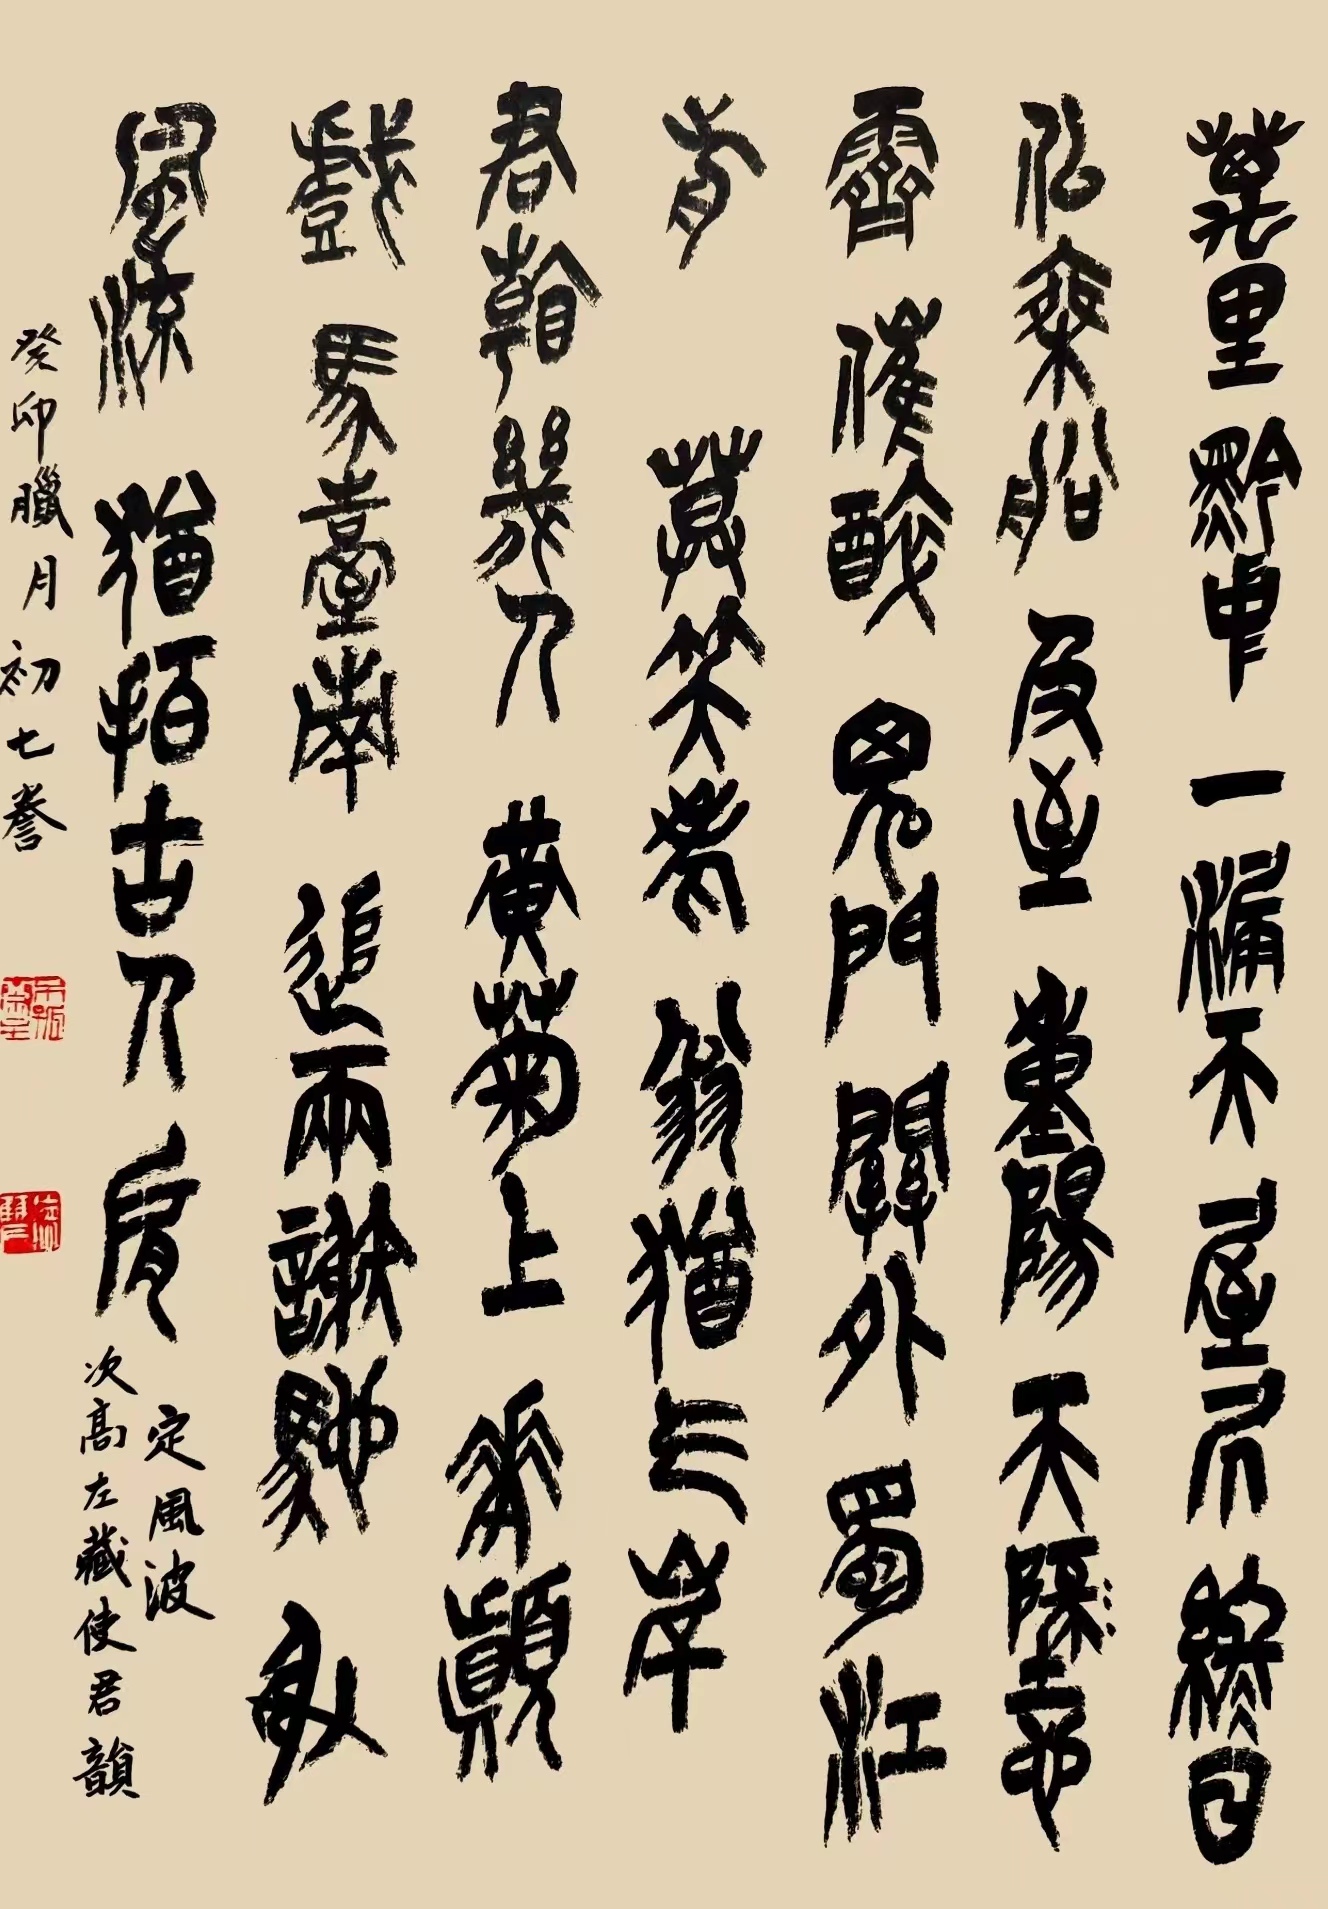 萬里黔中一漏天屋居終日
佀乘船及至重陽天也
霽催醉鬼門關外蜀江
前莫笑老翁猶气岸
君看幾人黃菊上華顛
戲馬臺南追兩謝馳射
風流猶拍古人肩
定風波
次高左藏使君韻
癸卯臘月初七誊